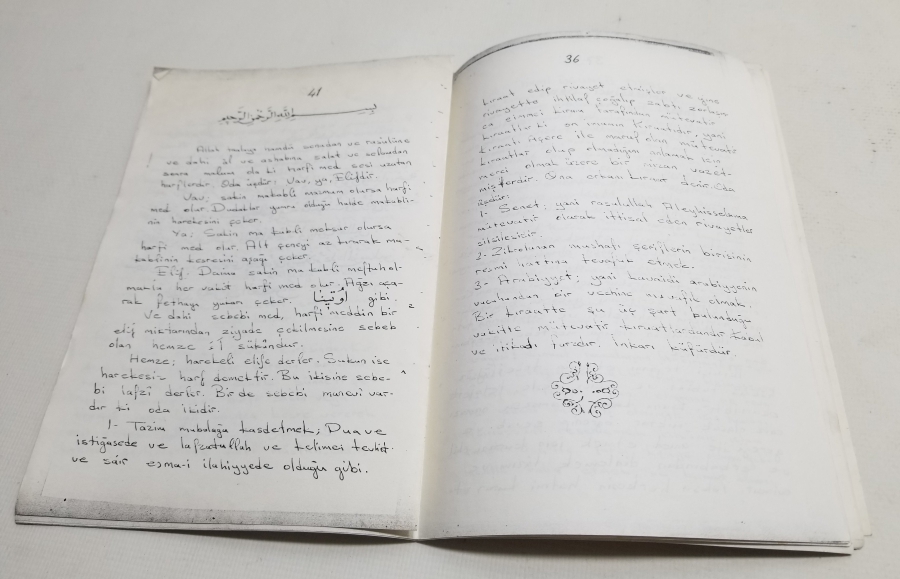 41
بِسْمِ اللهِ الرَّحْمٰنِ الرَّحِيمِ
Allah taalaya hamdü senadan ve rasulüne
ve dahi âl ve ashabına salat ve selamdan
sonra malum ola ki harfi med sesi uzatan
harflerdir. Oda üçdür: Vav, ya, Elifdir.
Vav; sakin makabli mazmum olursa harfi
med olur. Dudaklar yumru olduğu halde makabli-
nin harekesini çeker.
Ya; Sakin ma kabli meksur olursa
harfi med olur. Alt çeneyi az kırarak ma-
kablinin kesresini aşağı çeker.
Elif: Daima sakin ma kabli meftuh ol-
makla her vakit harfi med olur. Ağzı aça-
rak fethayı yukarı çeker. أُوتِينَا gibi.
Ve dahi sebebi med, harfi meddin bir
elif miktarından ziyade çekilmesine sebeb
olan hemze ile sükûndur.
Hemze; harekeli elife derler. Sukun ise
harekesiz harf demektir. Bu ikisine sebe-
bi lafzî derler. Birde sebebi manevi var-
dır ki oda ikidir.
1- Tazim mubalağa kasdetmek; Dua ve
istiğasede ve lafzatullah ve kelimei tevhit
ve sâir esma-i ilahiyyede olduğu gibi.
36
kıraat edip rivayet etmişler ve yine
rivayette ihtilaf çoğalıp zabtı zorlaşın-
ca eimmei kurra tarafından mütevatir
kıraatlar ki on imamın kıraatidir, yani
kıraati aşere ile maruf olan mütevatir
kıraatlar olup olmadığını anlamak için
merci olmak üzere bir mizan vazet-
mişlerdir. Ona erkanı kıraat denir. Oda
üçdür:
1- Senet; yani rasulullah Aleyhisselama
mütevatir olarak ittisal eden rivayetler
silsilesidir.
2- Zikrolunan mushafı şeriflerin birisinin
resmi hattına tevafuk etmek.
3- Arabiyyet; yani kavaidi arabiyyenin
vucuhundan bir vechine muvafık olmak.
Bir kıraatte şu üç şart bulunduğu
vakitte mütevatir kıraatlardandır. Kabul
ve itikadı farzdır. İnkarı küfürdür.